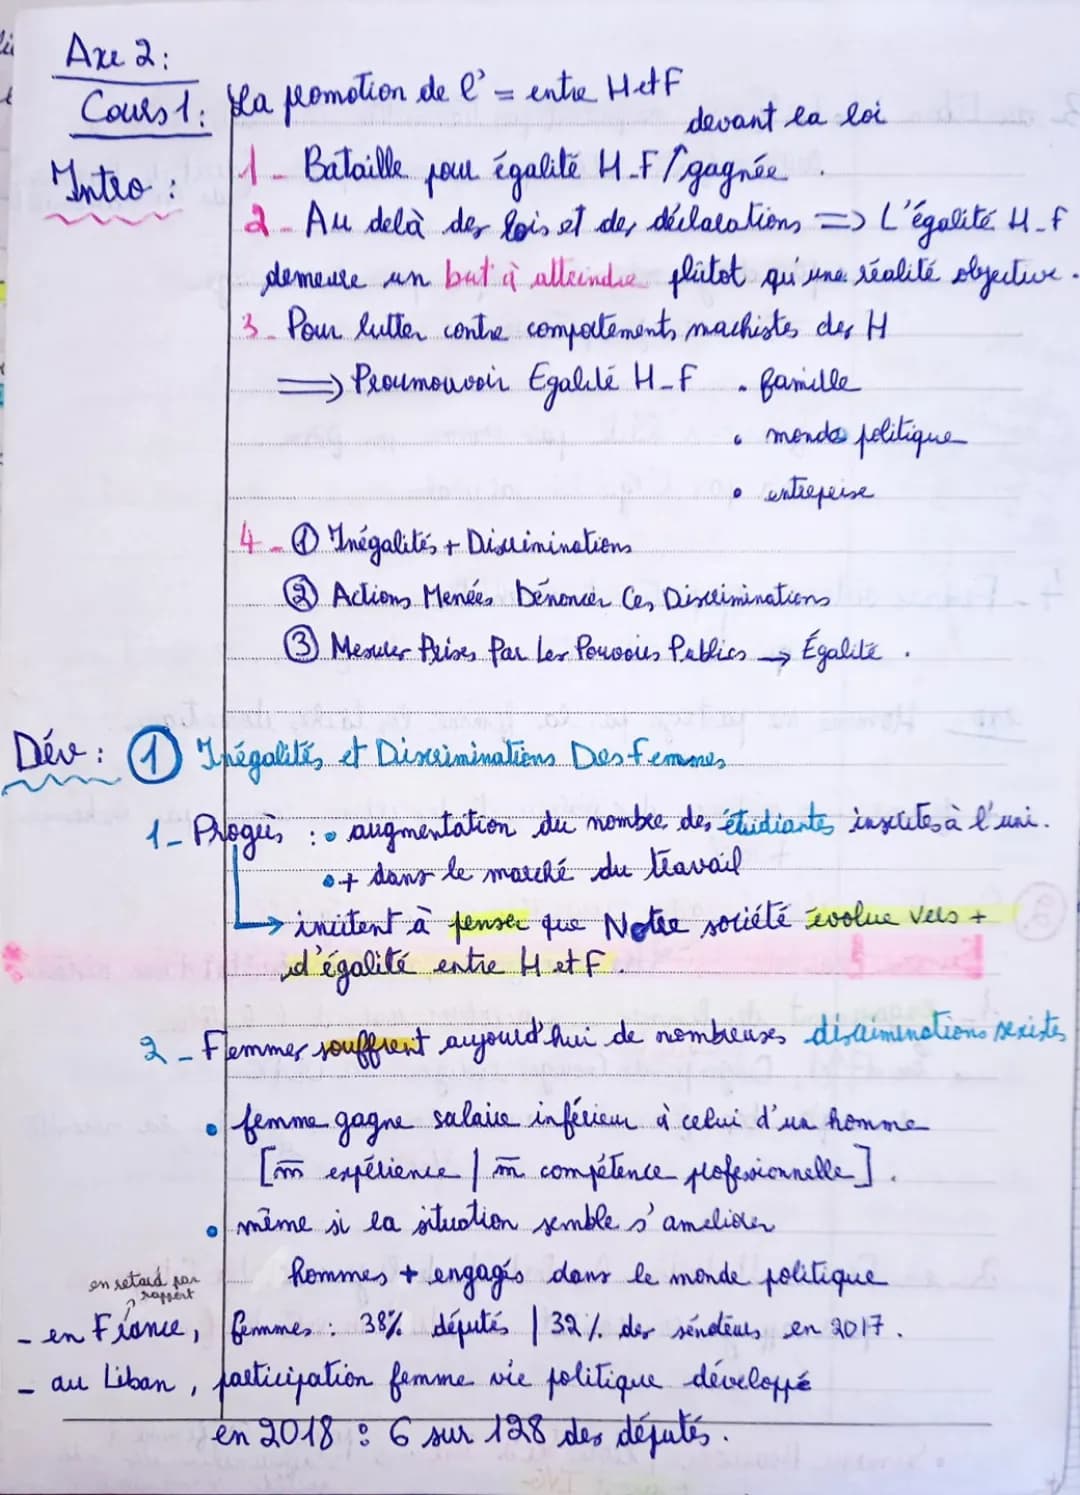 Axe 2:
Cours 1: La promotion de l' = entre H et F
devant la loi
Intro : 1- Bataille pour égalité H-F / gagnée.
2- Au delà des lois et des déclarations => L'égalité H-F
demeure un but à atteindre plûtot qu'une réalité objective.
3- Pour lutter contre comportements machistes des H
=> Proumouvoir Egalité H-F • famille
• monde politique
• entreprise
4- ① Inégalités + Discriminations
② Actions Menées Dénoncer Ces Discriminations
③ Mesures Prises Par Les Pouvoirs Publics → Égalité.
Dév : ① Inégalités et Discriminations Des femmes
1- Progrès : • augmentation du nombre des étudiantes inscrites à l'uni.
• + dans le marché du travail
→ incitent à penser que Notre société évolue vers +
d'égalité entre H et F.
2- Femmes souffrent aujourd'hui de nombreuses discriminations sexistes
• femme gagne salaire inférieur à celui d'un homme
[m̄ expérience / m̄ compétence professionnelle].
• même si la situation semble s'améliorer
hommes + engagés dans le monde politique
en retard par
rapport
- en France, femmes : 38% députés / 32% des séndeurs en 2017.
- au Liban, participation femme vie politique développé
en 2018 : 6 sur 128 des députés.